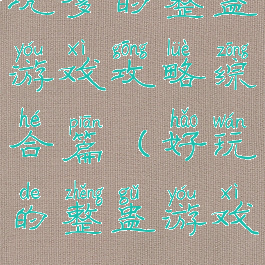 的整蛊
yóu xì gōng lüè zōng
游戏攻略综
hé piān hǎo wán
合篇（好玩
de zhěng gǔ yóu xì
的整蛊游戏